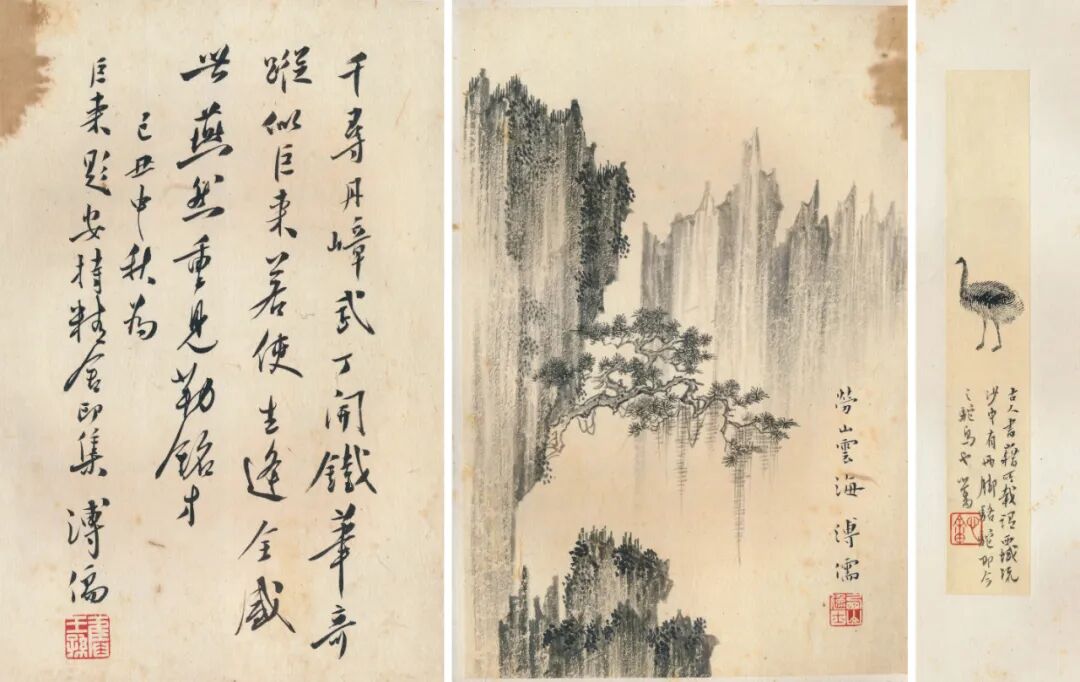 千尋丹嶂武丁開鐵筆奇
蹤似巨來若使生逢全盛
世燕然重見勒銘才
己丑中秋為
巨來題安持精舍印集 溥儒
舊王孫
勞山雲海 溥儒
古人書籍所載謂西域流
沙中有兩脚駱駝即今
之鴕鳥也 心畬